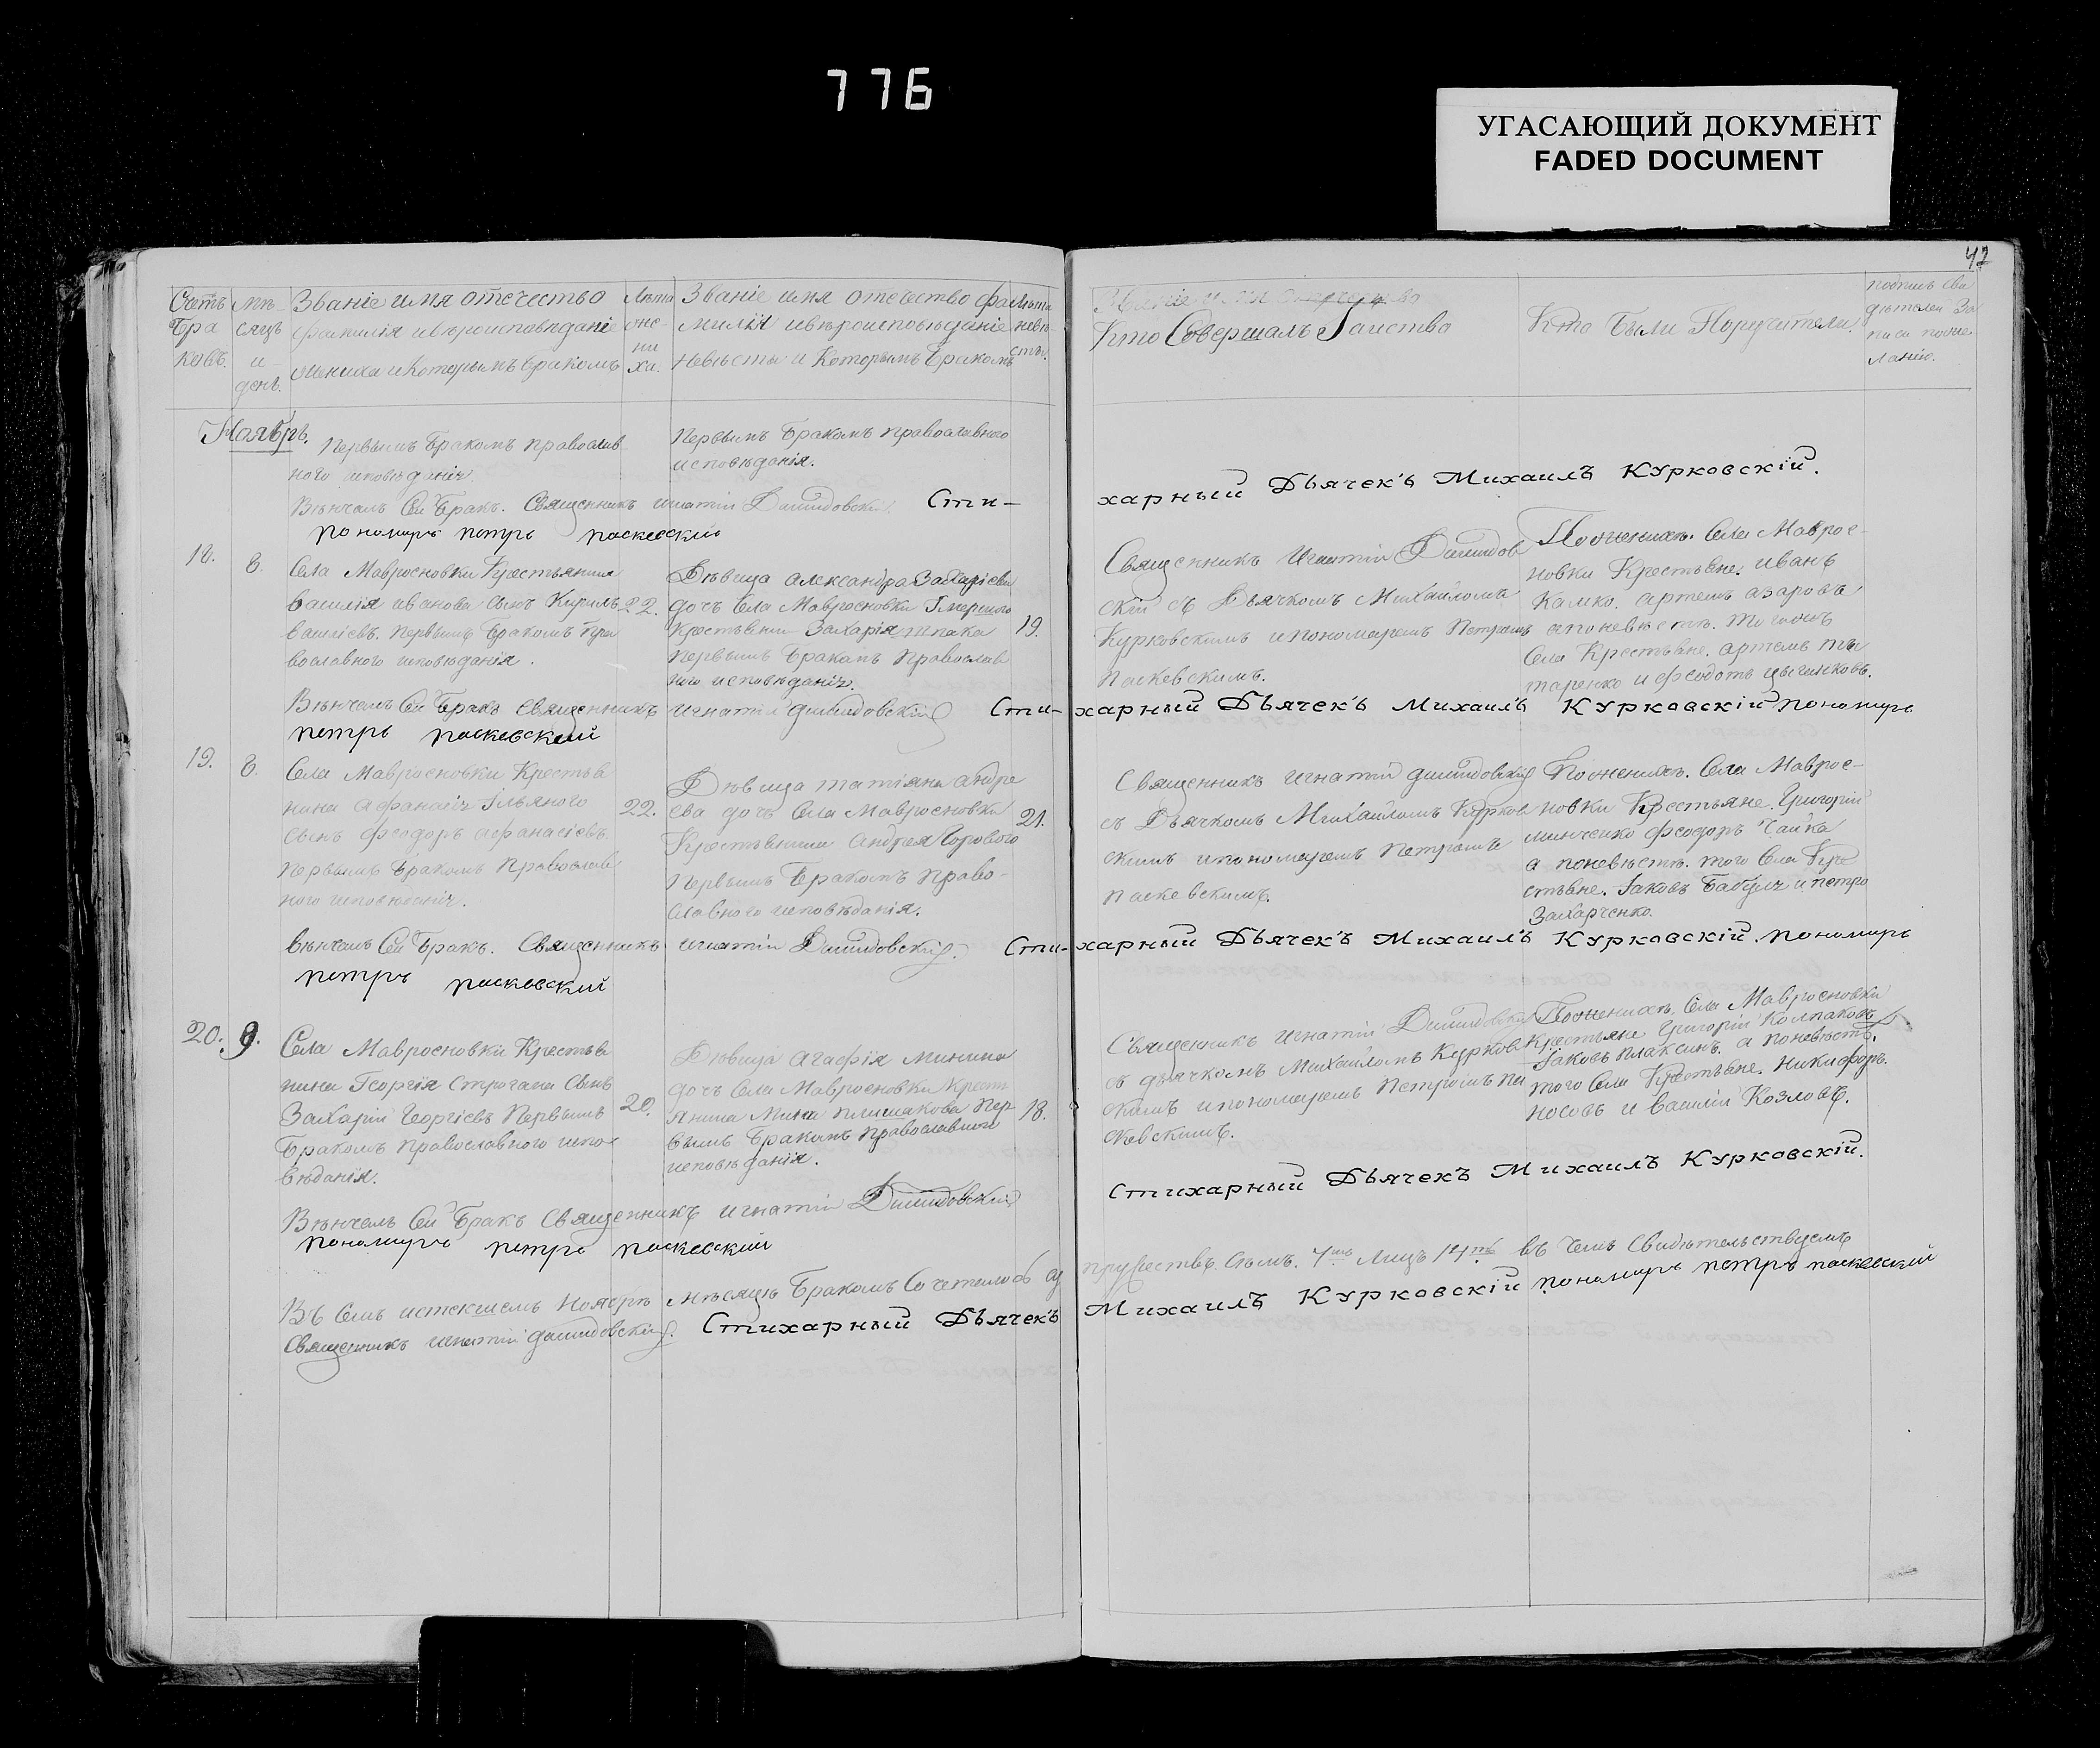 776
УГАСАЮЩИЙ ДОКУМЕНТ
FADED DOCUMENT
42
Счетъ Бра ковъ.
Мѣ- сяцъ и день.
Званіе имя отечество
фамилія ивѣроисповѣданіе
жениха икоторымъ бракомъ
Лѣта
жениха.
Званіе имя отечество фа
милія ивѣроисповѣданіе
невѣсты и Которымъ бракомъ
Лѣта невѣ- сты.
Кто Совершалъ Таинство
Кто были Поручители.
подпись сви
дѣтелей За
писи по же
ланію.
Ноябрь.
Первымъ бракомъ православ
ного исповѣданія
Первымъ бракомъ православного
исповѣданія.
Вѣнчалъ Сей бракъ. Священникъ игнатій Сти-
харный Дьячекъ Михаилъ Курковскій.
пономарь петръ паскевский
18.
8.
Села Мавросновки Крестьянина
василія иванова сынъ Кирилъ
василіевъ. первымъ бракомъ пра
вославного исповѣданія.
22.
Дѣвица александра Захаріева
дочь Села Мавросновки Умершого
Крестьянина Захарія шпака
первымъ бракомъ православ
ного исповѣданія.
19.
Священникъ Игнатій
скій съ Дьячкомъ Михаиломъ
Курковскимъ ипономаремъ Петромъ
паскевскимъ.
По женихѣ. Села Маврос-
новки Крестьяне. иванъ
Камко. артемъ азаровъ
апоневѣстѣ. того жъ
Села Крестьяне. артемъ ты
таренко и феодотъ цыганковъ.
Вѣнчалъ Сей бракъ Священникъ игнатій Сти-
харный Дьячекъ Михаилъ Курковскій пономарь
петръ паскевский
19.
8.
Села Мавросновки Крестья
нина афанасія Ільяного
сынъ феодоръ афанасіевъ.
первымъ бракомъ православ
ного исповѣданія.
22.
Дѣвица татіяна андре
ева дочь Села Мавросновки
Крестьянина андрея Горового
Первымъ бракомъ право-
славного исповѣданія.
21.
Священникъ игнатій
съ Дьячкомъ Михаиломъ Курков
скимъ ипономаремъ петромъ
паскевскимъ.
По женихѣ. Села Маврос-
новки Крестьяне. Григорій
минченко феодоръ Чайка
а поневѣстѣ. того Села Кре
стьяне. Іаковъ Бабичъ и петро
Захарченко.
вѣнчалъ Сей бракъ. Священникъ игнатій Сти-
харный Дьячекъ Михаилъ Курковскій. пономарь
петръ паскевский
20.
9.
Села Мавросновки Крестья
нина Георгія Строгана Сынъ
Захарій Георгіевъ Первымъ
бракомъ православного испо
вѣданія.
20.
Дѣвица агафія минина
дочь Села Мавросновки Крест
янина Мины плишакова пер
вымъ бракомъ православного
исповѣданія.
18.
Священникъ игнатій
съ дьячкомъ Михаиломъ Курков
скимъ ипономаремъ Петромъ па
скевскимъ.
По женихѣ. Села Мавросновки
Крестьяне Григорій Колпаковъ
Іаковъ плаксинъ. а поневѣстѣ.
того Села Крестьяне. Никифоръ.
носовъ и василій Козловъ.
Стихарный Дьячекъ Михаилъ Курковскій.
Вѣнчалъ Сей бракъ Священникъ игнатій
пономарь петръ паскевский
Въ Семъ истекшемъ Ноябрѣ мѣсяцѣ бракомъ Сочеталось су
пружествъ. съмъ. 7мъ лицъ 14ть въ чемъ Свидѣтельствуемъ
Священникъ игнатій Стихарный Дьячекъ
Михаилъ Курковскій пономарь петръ паскевский